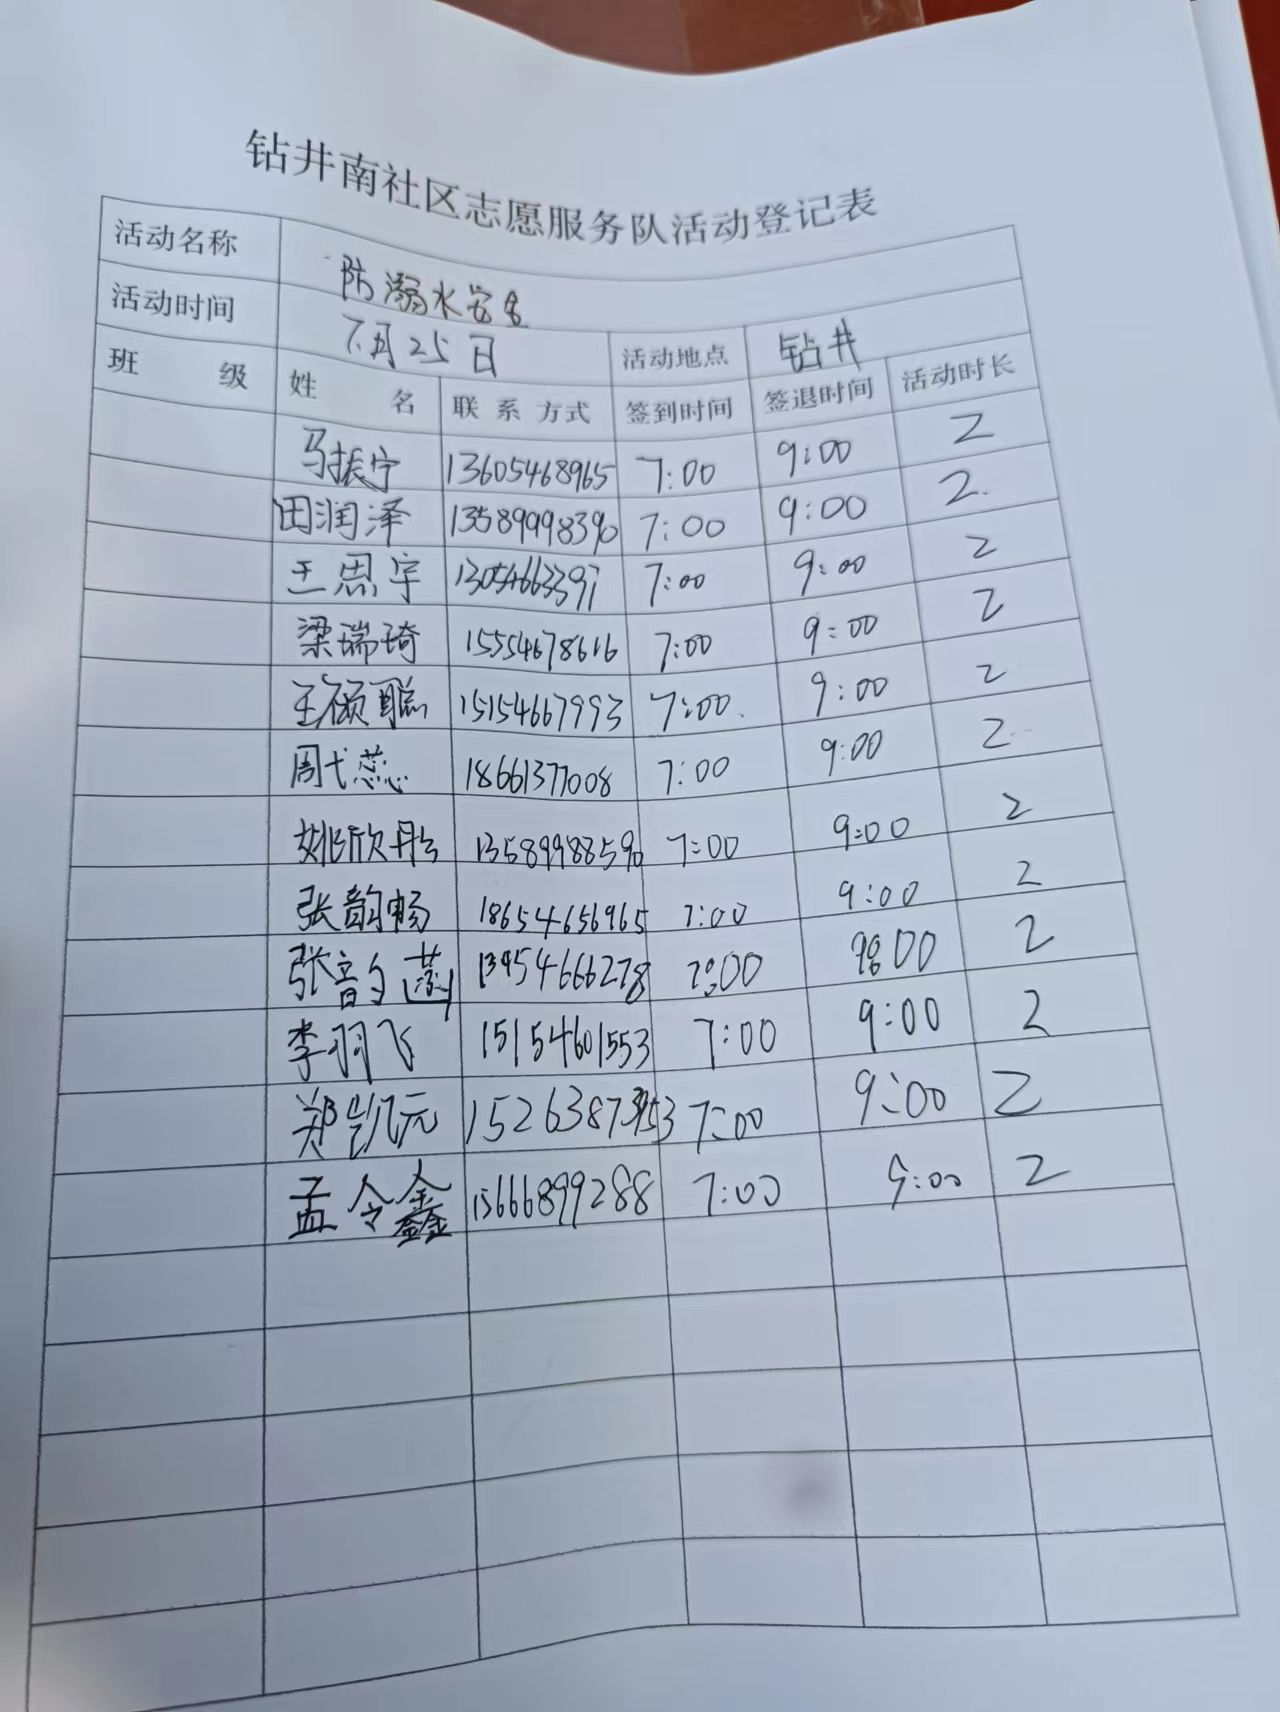 钻井南社区志愿服务队活动登记表
活动名称 防溺水安全
活动时间 7月25日 活动地点 钻井
班级 姓名 联系方式 签到时间 签退时间 活动时长
马振宁 13605468965 7:00 9:00 2
田润泽 13589998390 7:00 9:00 2.
王思宇 7:00 9:00 2
梁瑞琦 15554678616 7:00 9:00 2
王硕聪 15154667993 7:00. 9:00 2
周弋蕊 18661377008 7:00 9:00 2
姚欣彤 13589988590 7:00 9:00 2
张韵畅 18654656965 7:00 9:00 2
张韵涵 13954666278 7:00 9:00 2
李羽飞 15154601553 7:00 9:00 2
郑凯元 7:00 9:00 2
孟令鑫 15666899288 7:00 9:00 2